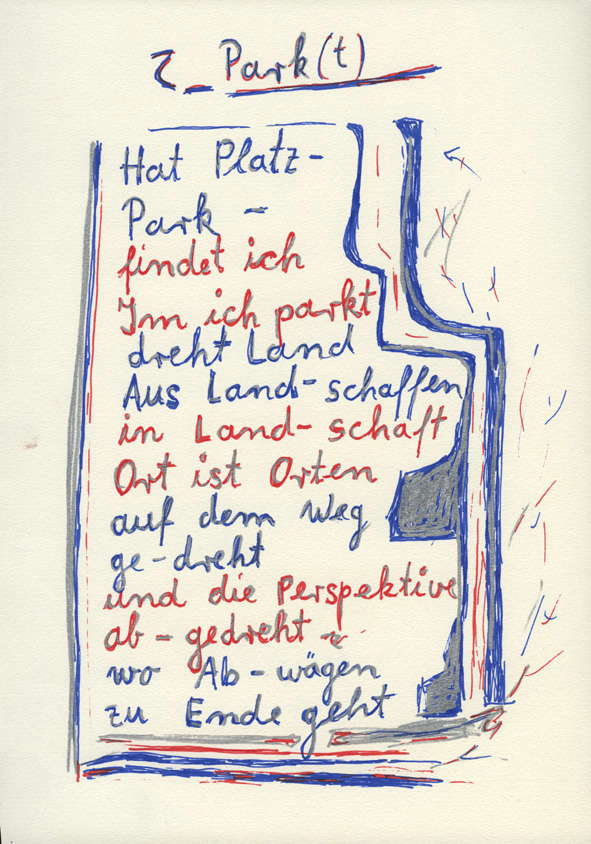 2_ Park(t)
Hat Platz-
Park -
findet ich
Im ich parkt
dreht Land
Aus Land-schaffen
in Land-schaft
Ort ist Orten
auf dem Weg
ge-dreht
und die Perspektive
ab-gedreht
wo Ab-wägen
zu Ende geht